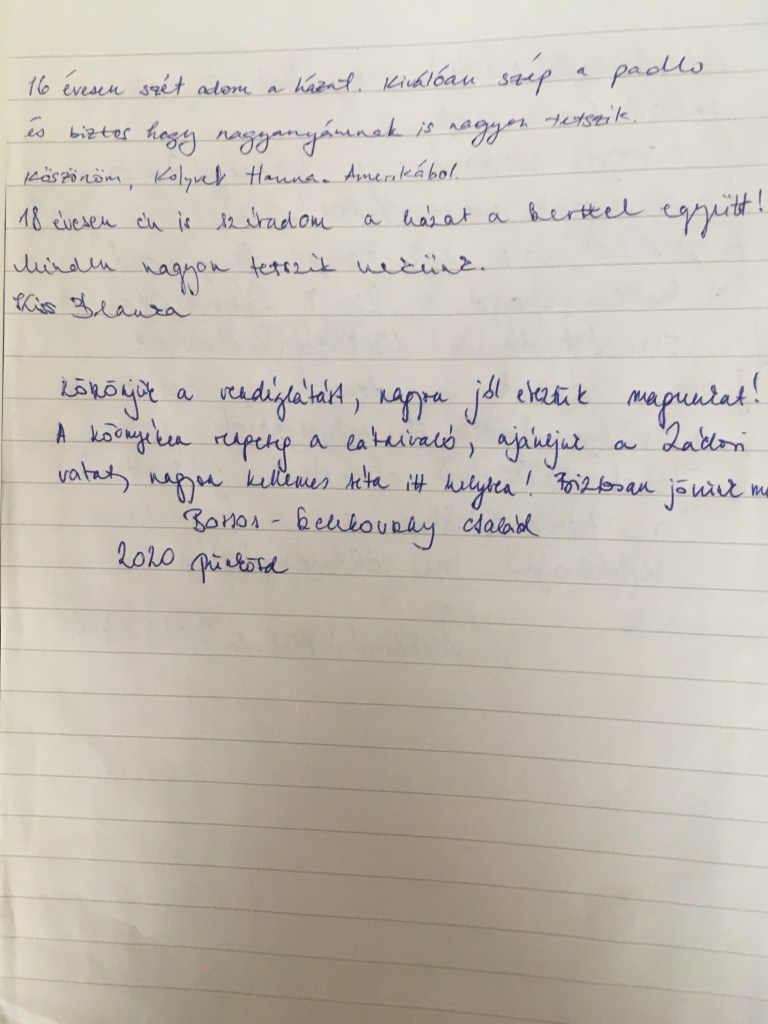 16 évesen szét adom a házat. Kiválóan szép a padlo
és biztos hogy nagyanyámnak is nagyon tetszik.
Köszönöm, Hanna. Amerikábol.
18 évesen én is a házat a kerttel együtt!
Minden nagyon tetszik nekünk.
Kiss Blanka
a vendéglátást, nagyon jól éreztük magunkat!
A környéken rengeteg a látnivaló, ajánljuk a Zádori
várat, nagyon kellemes séta itt helyben! Biztosan jövünk
család
2020 pünkösd